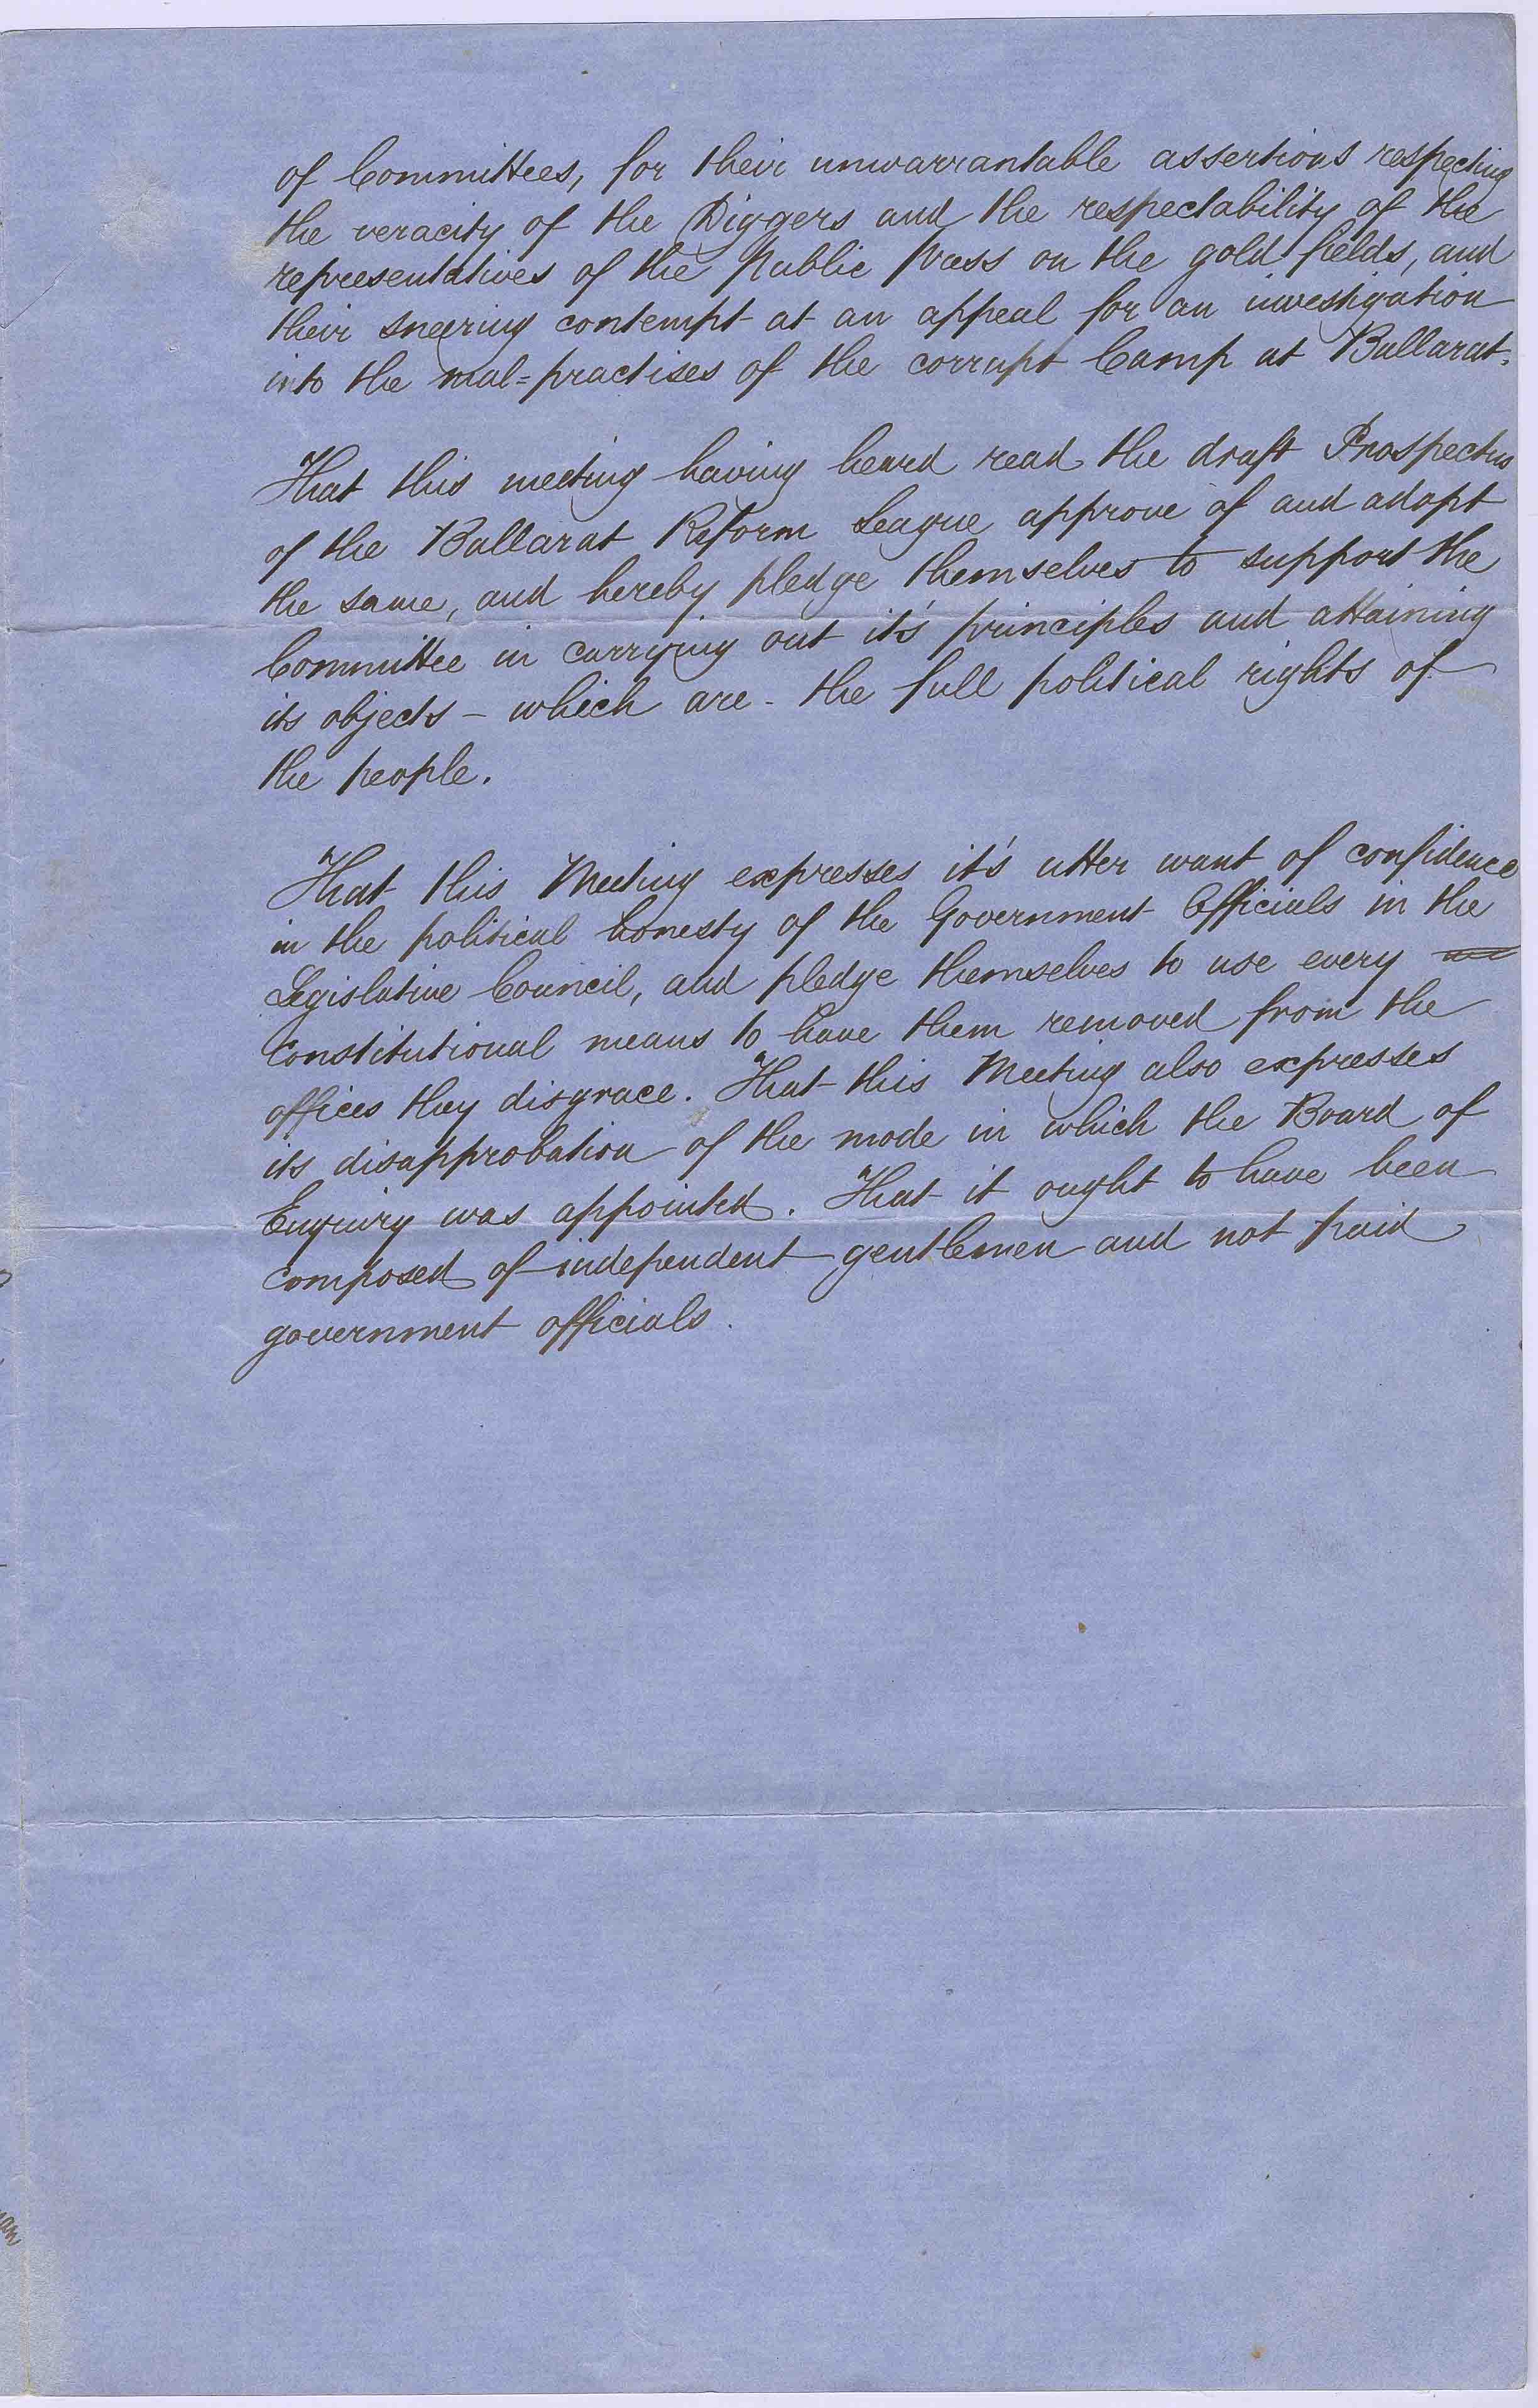 of Committees, for their unwarrantable assertions respecting
the veracity of the Diggers and the respectability of the
representatives of the public press on the gold fields, and
their sneering contempt at an appeal for an investigation
into the mal=practises of the corrupt Camp at Ballarat.
That this meeting having heard read the draft Prospectus
of the Ballarat Reform League approve of and adopt
the same, and hereby pledge themselves to support the
Committee in carrying out it's principles and attaining
its objects - which are - the full political rights of
the people.
That this Meeting expresses it's utter want of confidence
in the political honesty of the Government Officials in the
Legislative Council, and pledge themselves to use every
constitutional means to have them removed from the
offices they disgrace. That this Meeting also expresses
its disapprobation of the mode in which the Board of
Enquiry was appointed. That it ought to have been
composed of independent gentlemen and not paid
government officials.